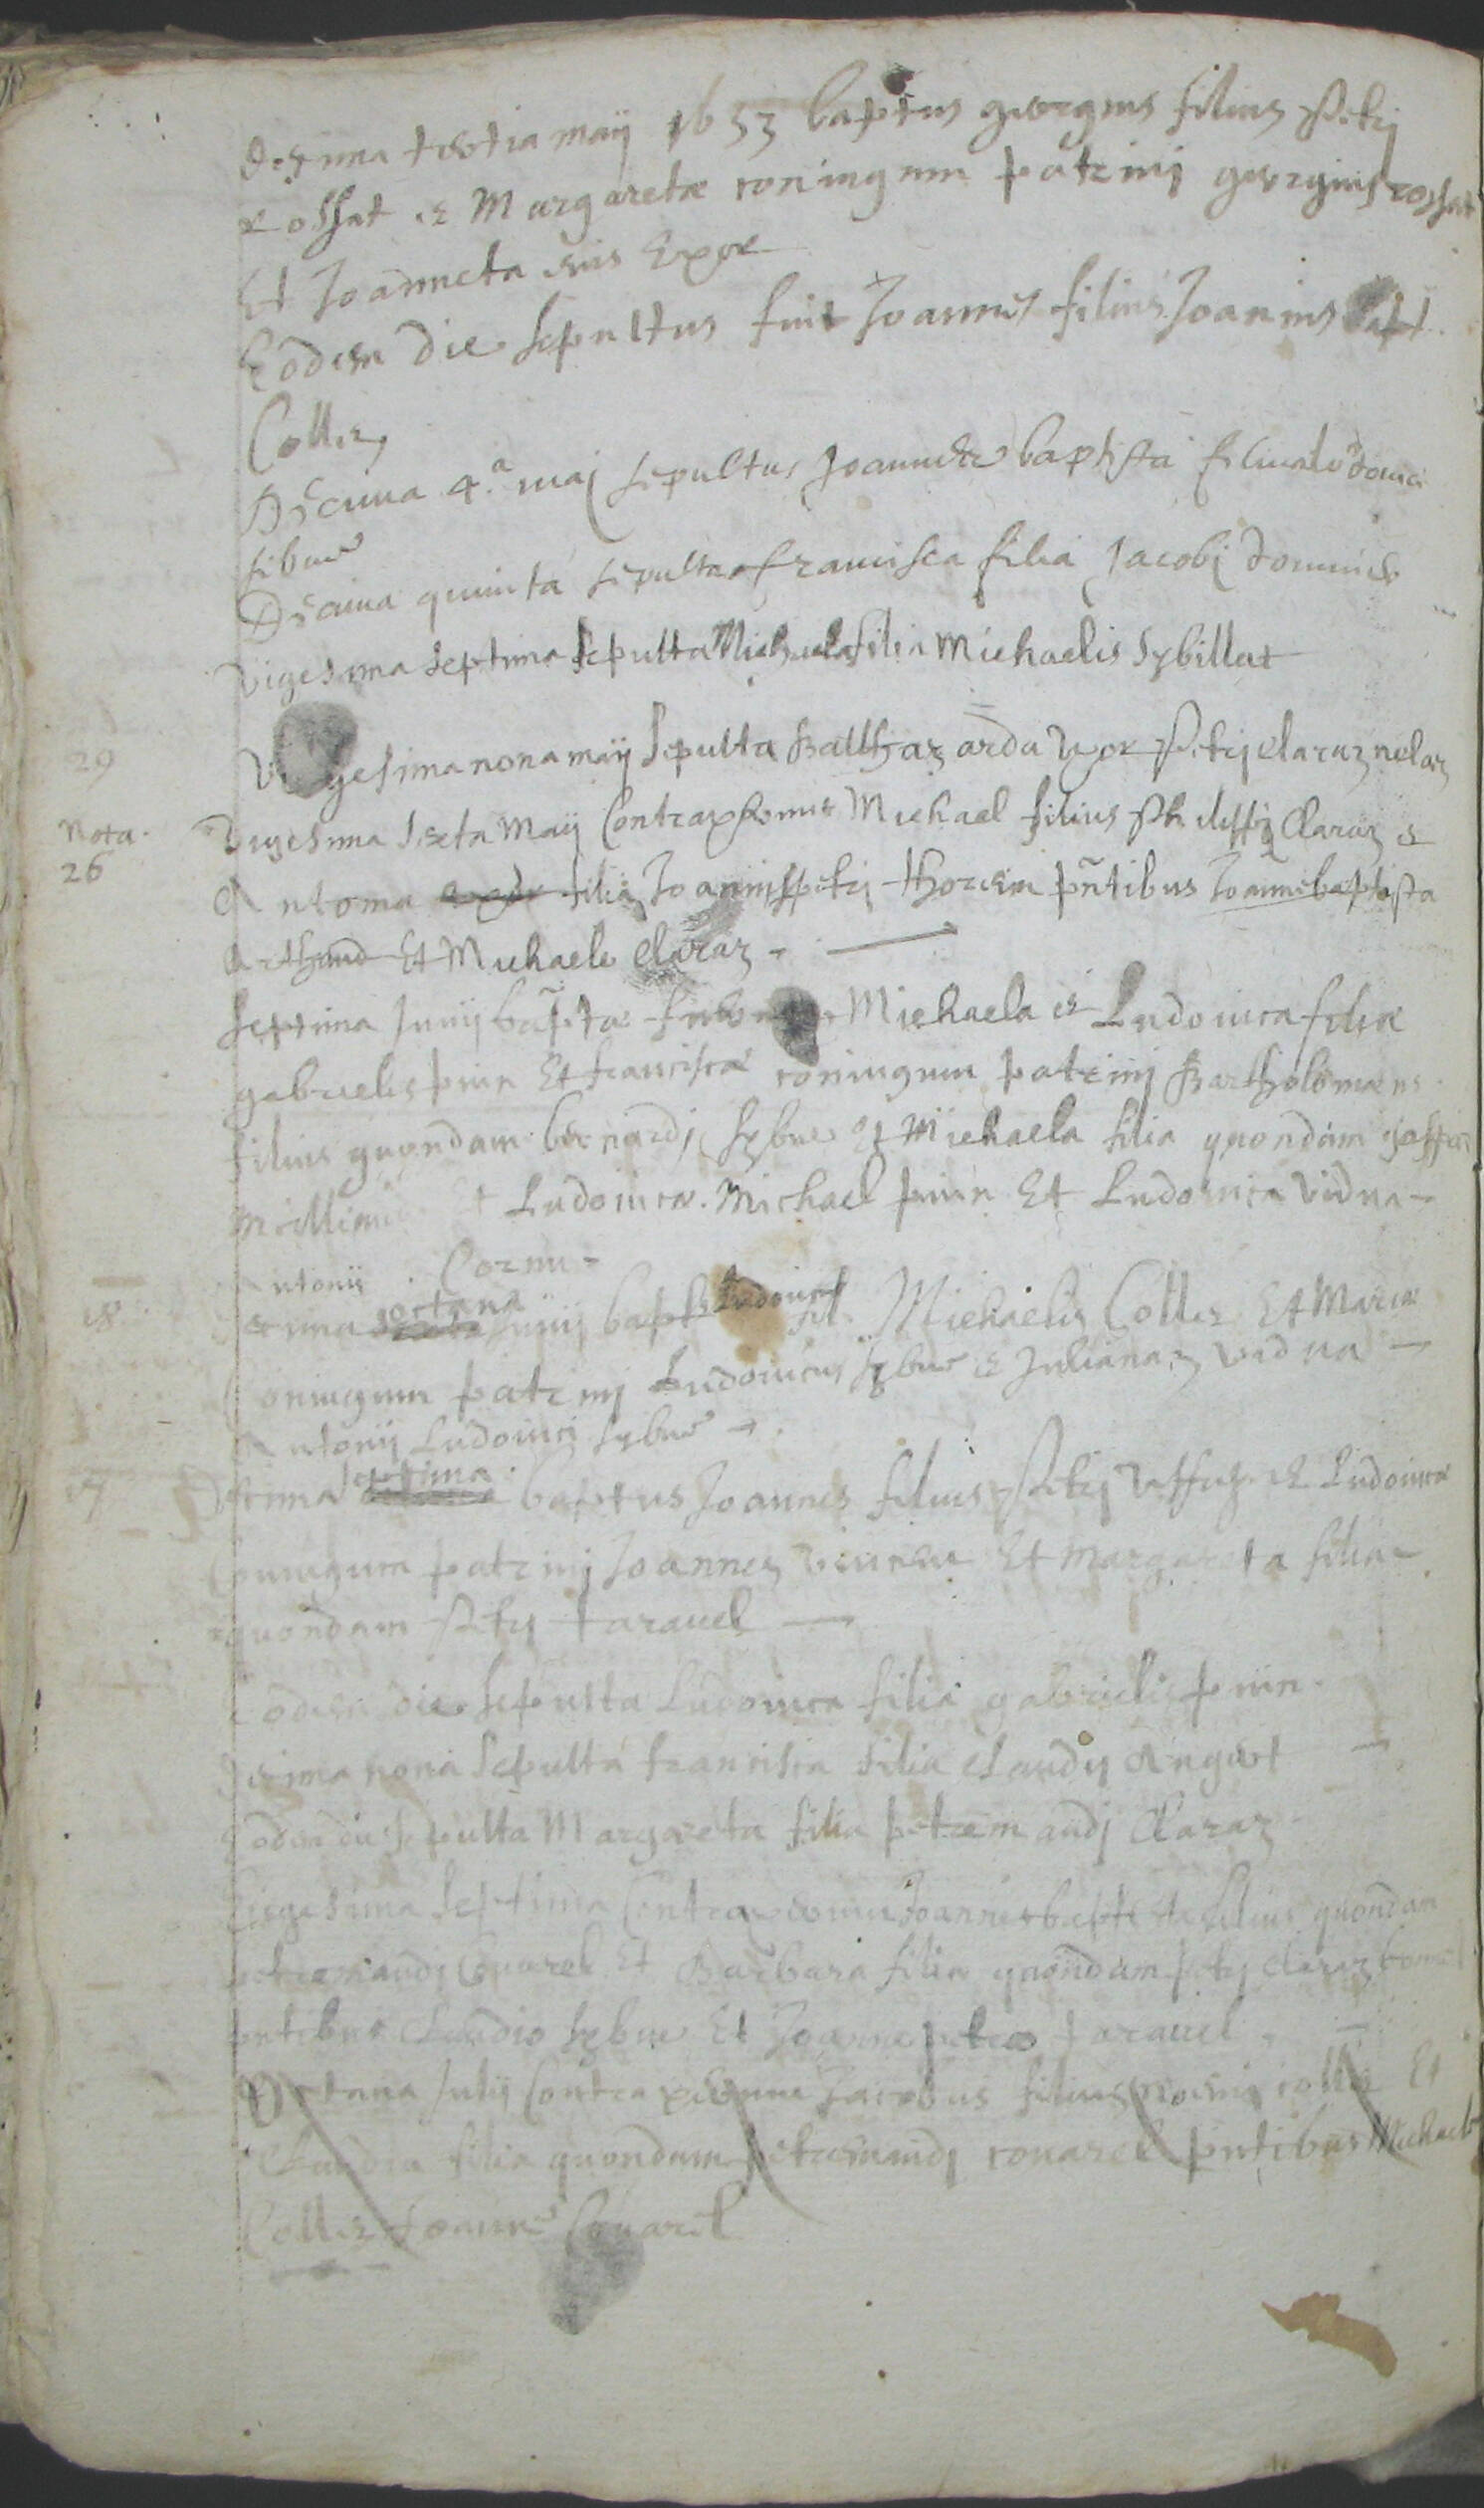 decima tertia maij 1653 baptus georgius filius Petri
rossat et Margaretæ coniugum patrinj georgius rossat
Et Joanneta eius Exor
Eodem die sepultus fuit Joannes filius Joannis bapt
Collez
Decima 4.ª maj sepultus Joannes baptista filius ludouici
sibue
Decima quinta sepulta francisca filia Jacobj dominie
Vigesima septima sepulta Michaela filia Michaelis Sybillat
29
Vigesima nona maij sepulta Balthazarda Vxor Petrj claraz nelaz
Nota.
26
Vigesima sexta Maij Contraxerunt Michael filius Philippj Claraz et
Antonia filia Joannis petrj thorein pñtibus Joanne baptista
Arthaud Et Michaele claraz
septima Junij bapta Michaela et Ludouica filiæ
gabrielis puin Et franciscæ coniugum patrinj Bartholomæus
filius quondam bernardj sybue Et Michaela filia quondam
Ludouicæ. Michael puin Et Ludouica Vidua
Antonij Cornu
18
octaua Junij bapt Ludouicus fil. Michaelis Collez Et Mariæ
Coniugum patrinj Ludouicus sybue et Juliana vidua
Antonij Ludouici sybue
17
Decima septima baptus Joannes filius Petrj Vffuz et Ludouicæ
Coniugum patrinj Joannes Et Margareta filia
quondam Petrj tarauel
Eodem die sepulta Ludouica filia gabrielis puin
Decima nona sepulta francisca filia claudij Anget
Eodem die sepulta Margareta filia petremandj Claraz
Vigesima septima Contraxerunt Joannes baptista filius quondam
petremandj Couarel Et Barbara filia quondam petrj claraz
pntibus Claudio sybue Et Joanne petro tarauel
Octaua Julij Contraxerunt Jacobus filius collez Et
Claudia filia quondam petremandj couarel pntibus Michaele
Collez Joanne Couarel